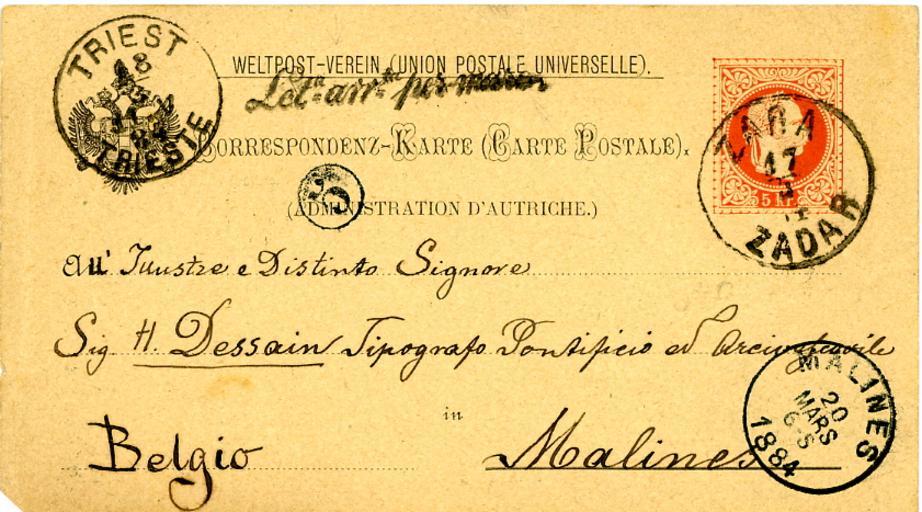 TRIEST
18
3
84
TRIESTE
WELTPOST-VEREIN (UNION POSTALE UNIVERSELLE).
Lett. arr. per
CORRESPONDENZ-KARTE (CARTE POSTALE).
5
(ADMINISTRATION D'AUTRICHE.)
5 Kr.
ZARA
17
3
ZADAR
All' Illustre e Distinto Signore
Sig H. Dessain Tipografo Pontificio ed Arcivescovile
in
Belgio Malines
MALINES
20
MARS
6-S
1884